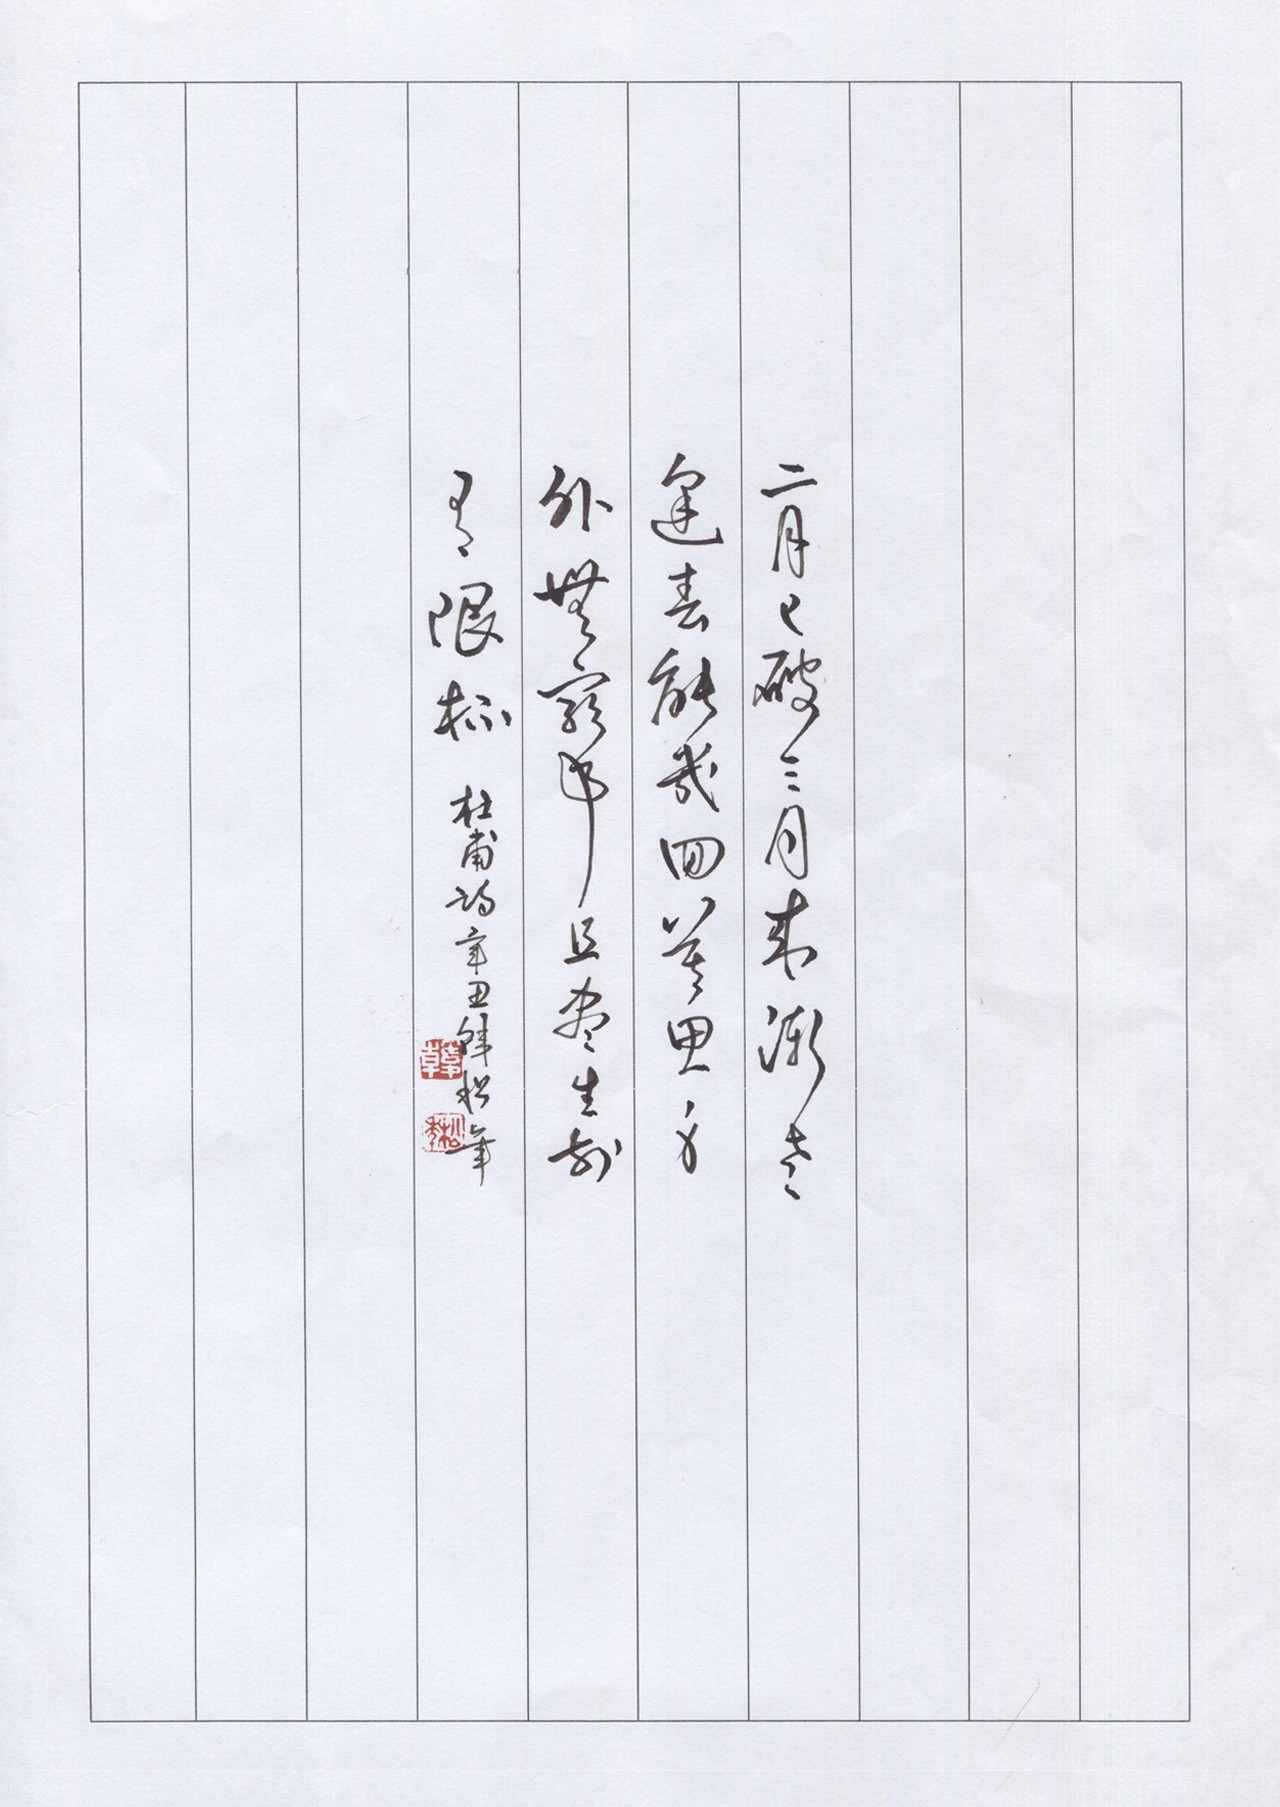 二月已破三月來漸老
逢春能幾回莫思身
外無窮事且盡生前
有限杯 杜甫詩 辛丑韓松年
韓